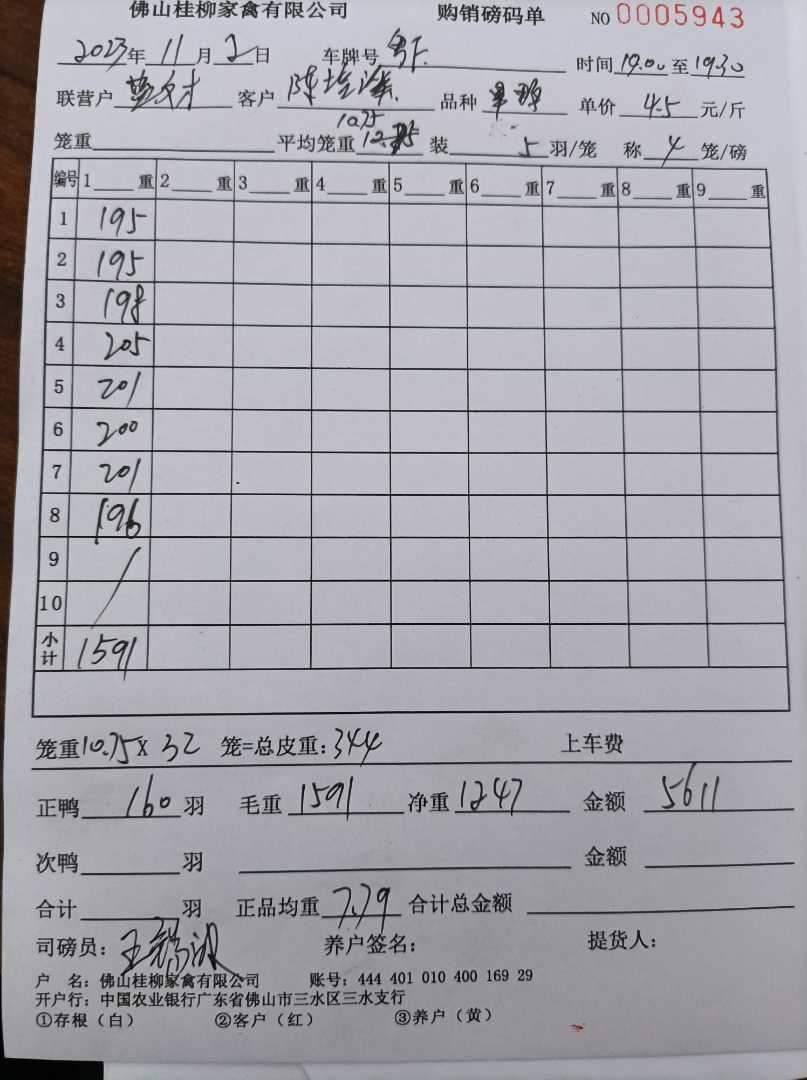 佛山桂柳家禽有限公司 购销磅码单 NO 0005943
2023年 11月 2日 车牌号 粤F. 时间 19.00 至 19.30
联营户 客户 陈培 品种 单价 4.5 元/斤
10.75
笼重 平均笼重 装 5 羽/笼 称 4 笼/磅
编号 1 重 2 重 3 重 4 重 5 重 6 重 7 重 8 重 9 重
1 195
2 195
3 198
4 205
5 201
6 200
7 201
8 196
9 /
10
小计 1591
笼重10.75 X 32 笼=总皮重:344 上车费
正鸭 160 羽 毛重 1591 净重 1247 金额 5611
次鸭 羽 金额
合计 羽 正品均重 7.79 合计总金额
司磅员: 王 养户签名: 提货人:
户 名: 佛山桂柳家禽有限公司 账号: 444 401 010 400 169 29
开户行: 中国农业银行广东省佛山市三水区三水支行
①存根(白) ②客户(红) ③养户(黄)